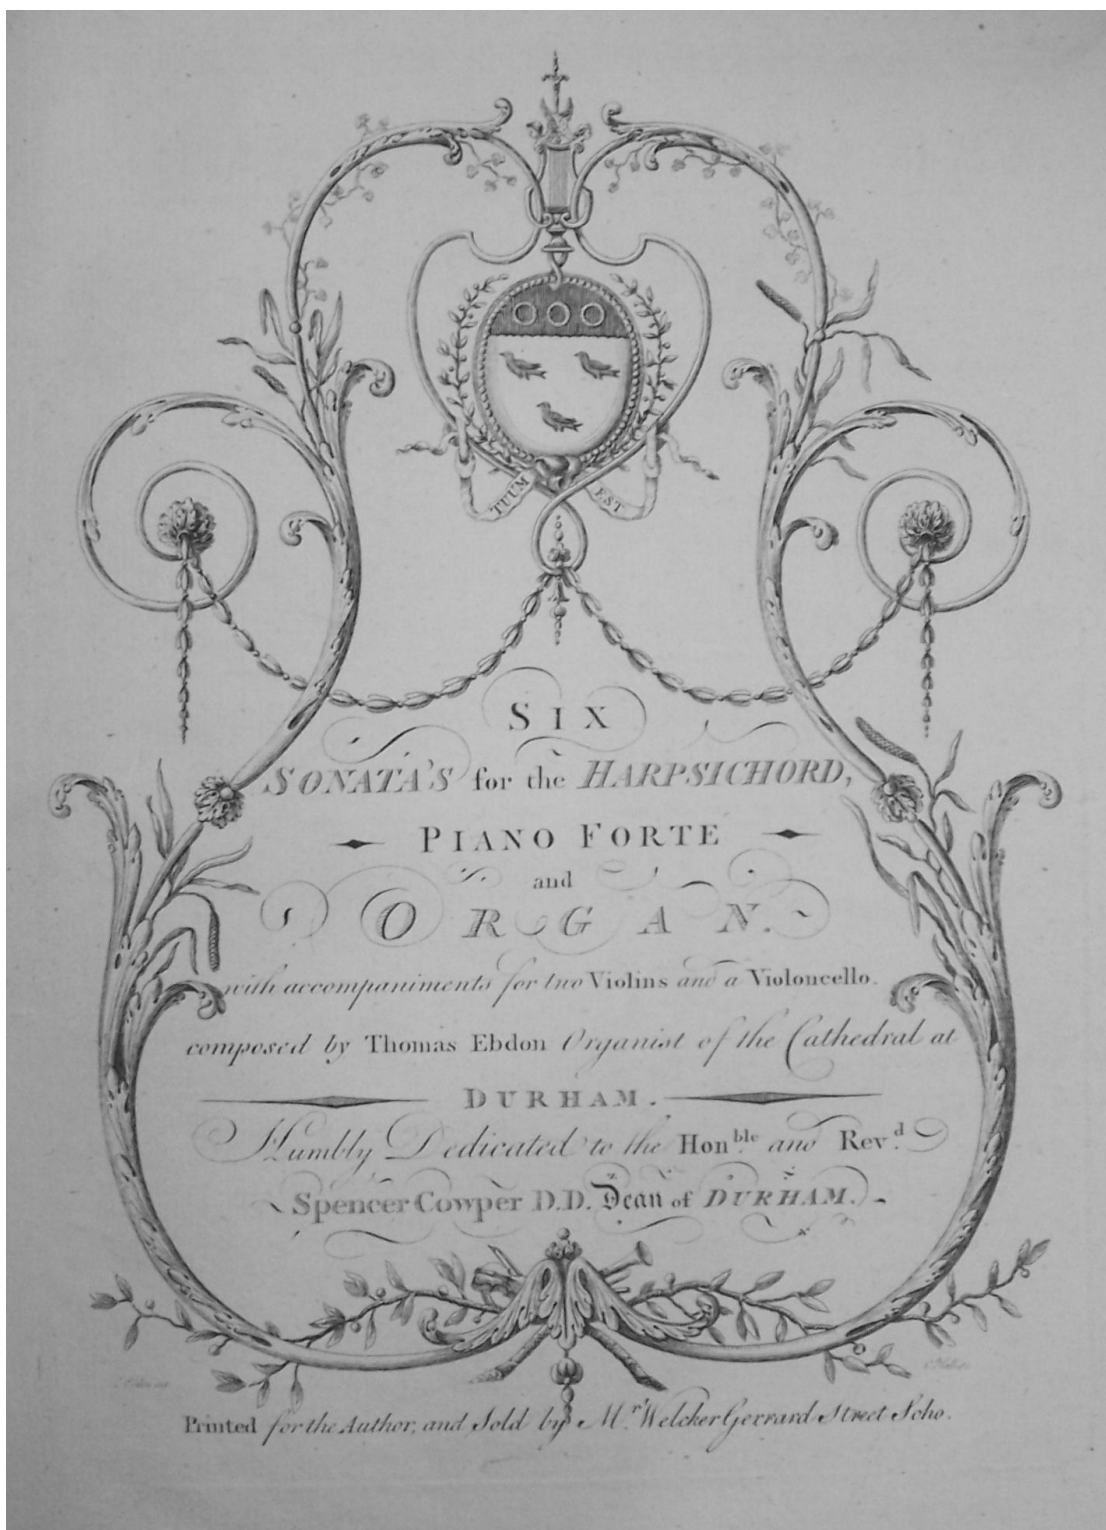 TUUM EST
SIX
SONATA'S for the HARPSICHORD,
PIANO FORTE
and
ORGAN.
with accompaniments for two Violins and a Violoncello.
composed by Thomas Ebdon Organist of the Cathedral at
DURHAM.
Humbly Dedicated to the Hon.ble and Rev.d
Spencer Cowper D.D. Dean of DURHAM.
Printed for the Author, and Sold by M.r Welcker Gerrard Street Soho.